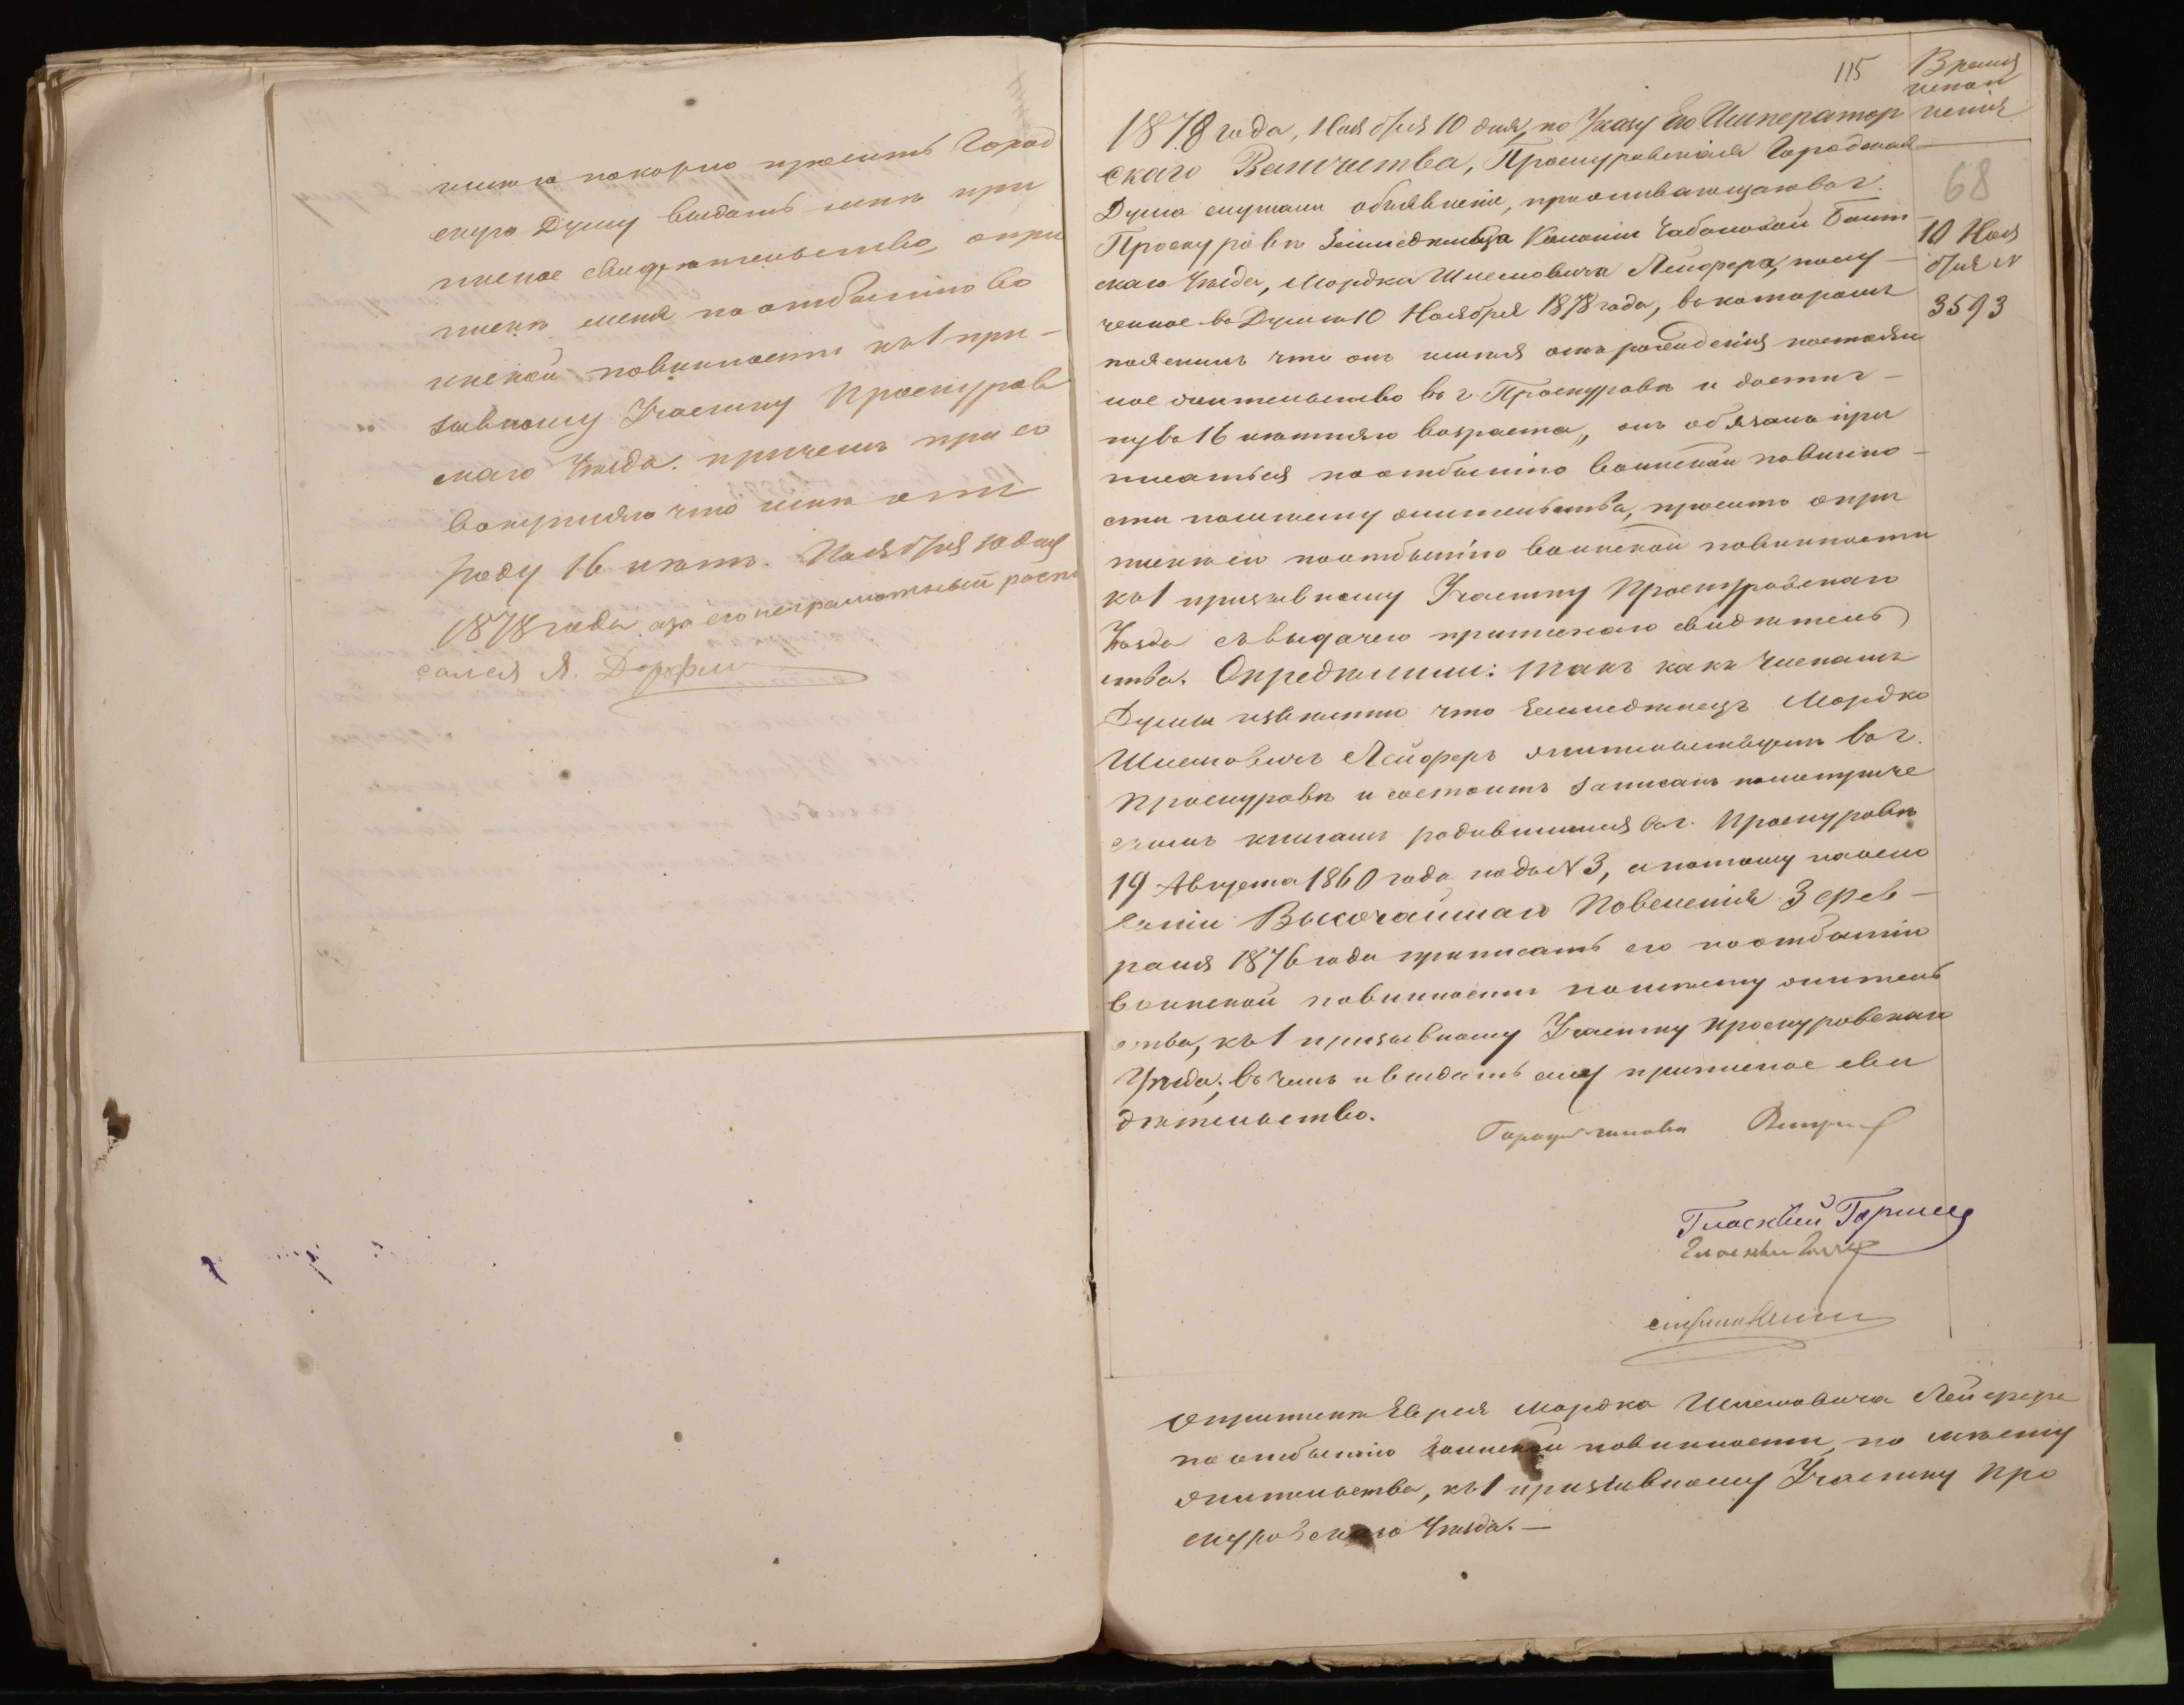 имѣю покорно просить Город
скую Думу выдать мнѣ при
писное свидѣтельство, о при
пискѣ меня по отбытію во
инской повинности къ 1 при-
зывному Участку Проскуров
скаго Уѣзда. причемъ при со
вокупляю что мнѣ отъ
роду 16 лѣтъ. Ноября 10 дня
1878 года а за его неграмотный роспи
сался Я.
115
Время
испол
ненія
68
10 Ноя
бря N
3593
1878 года, Ноября 10 дня, по Указу Его Император
скаго Величества, Проскуровская Городская
Дума слушали объявленіе, проживающаго въ г.
Проскуровѣ Земледѣльца Колоніи Балт
скаго Уѣзда, Мордка Шлемовича Лейфера, полу-
ченное въ Думѣ 10 Ноября 1878 года, въ которомъ
пояснилъ что онъ имѣя отъ рожденія постоян
ное жительство въ г. Проскуровѣ и достиг-
нувъ 16 лѣтняго возраста, онъ обязанъ при
писаться по отбытію воинской повинно-
сти по мѣсту жительства, проситъ о при
пискѣ его по отбытію воинской повинности
къ 1 призывному Участку Проскуровскаго
Уѣзда съ выдачею приписнаго свидѣтель
ства. Опредѣлили: такъ какъ Членамъ
Думы извѣстно что земледѣлецъ Мордко
Шлемовичъ Лейферъ жительствуетъ въ г.
Проскуровѣ и состоитъ записанъ по метриче
скимъ книгамъ родившимся въ г. Проскуровѣ
19 Августа 1860 года подъ N 3, а потому на осно
ваніи Высочайшаго Повеленія 3 Фев-
раля 1876 года приписать его по отбытію
воинской повинности по мѣсту житель
ства, къ 1 призывному Участку Проскуровскаго
Уѣзда, въ чемъ и выдать ему приписное сви
дѣтельство.
Гласный
Гласный
О припискѣ Еврея Мордка Шлемовича Лейфера
по отбытію воинской повинности, по мѣсту
жительства, къ 1 призывному Участку Про
скуровскаго Уѣзда.—